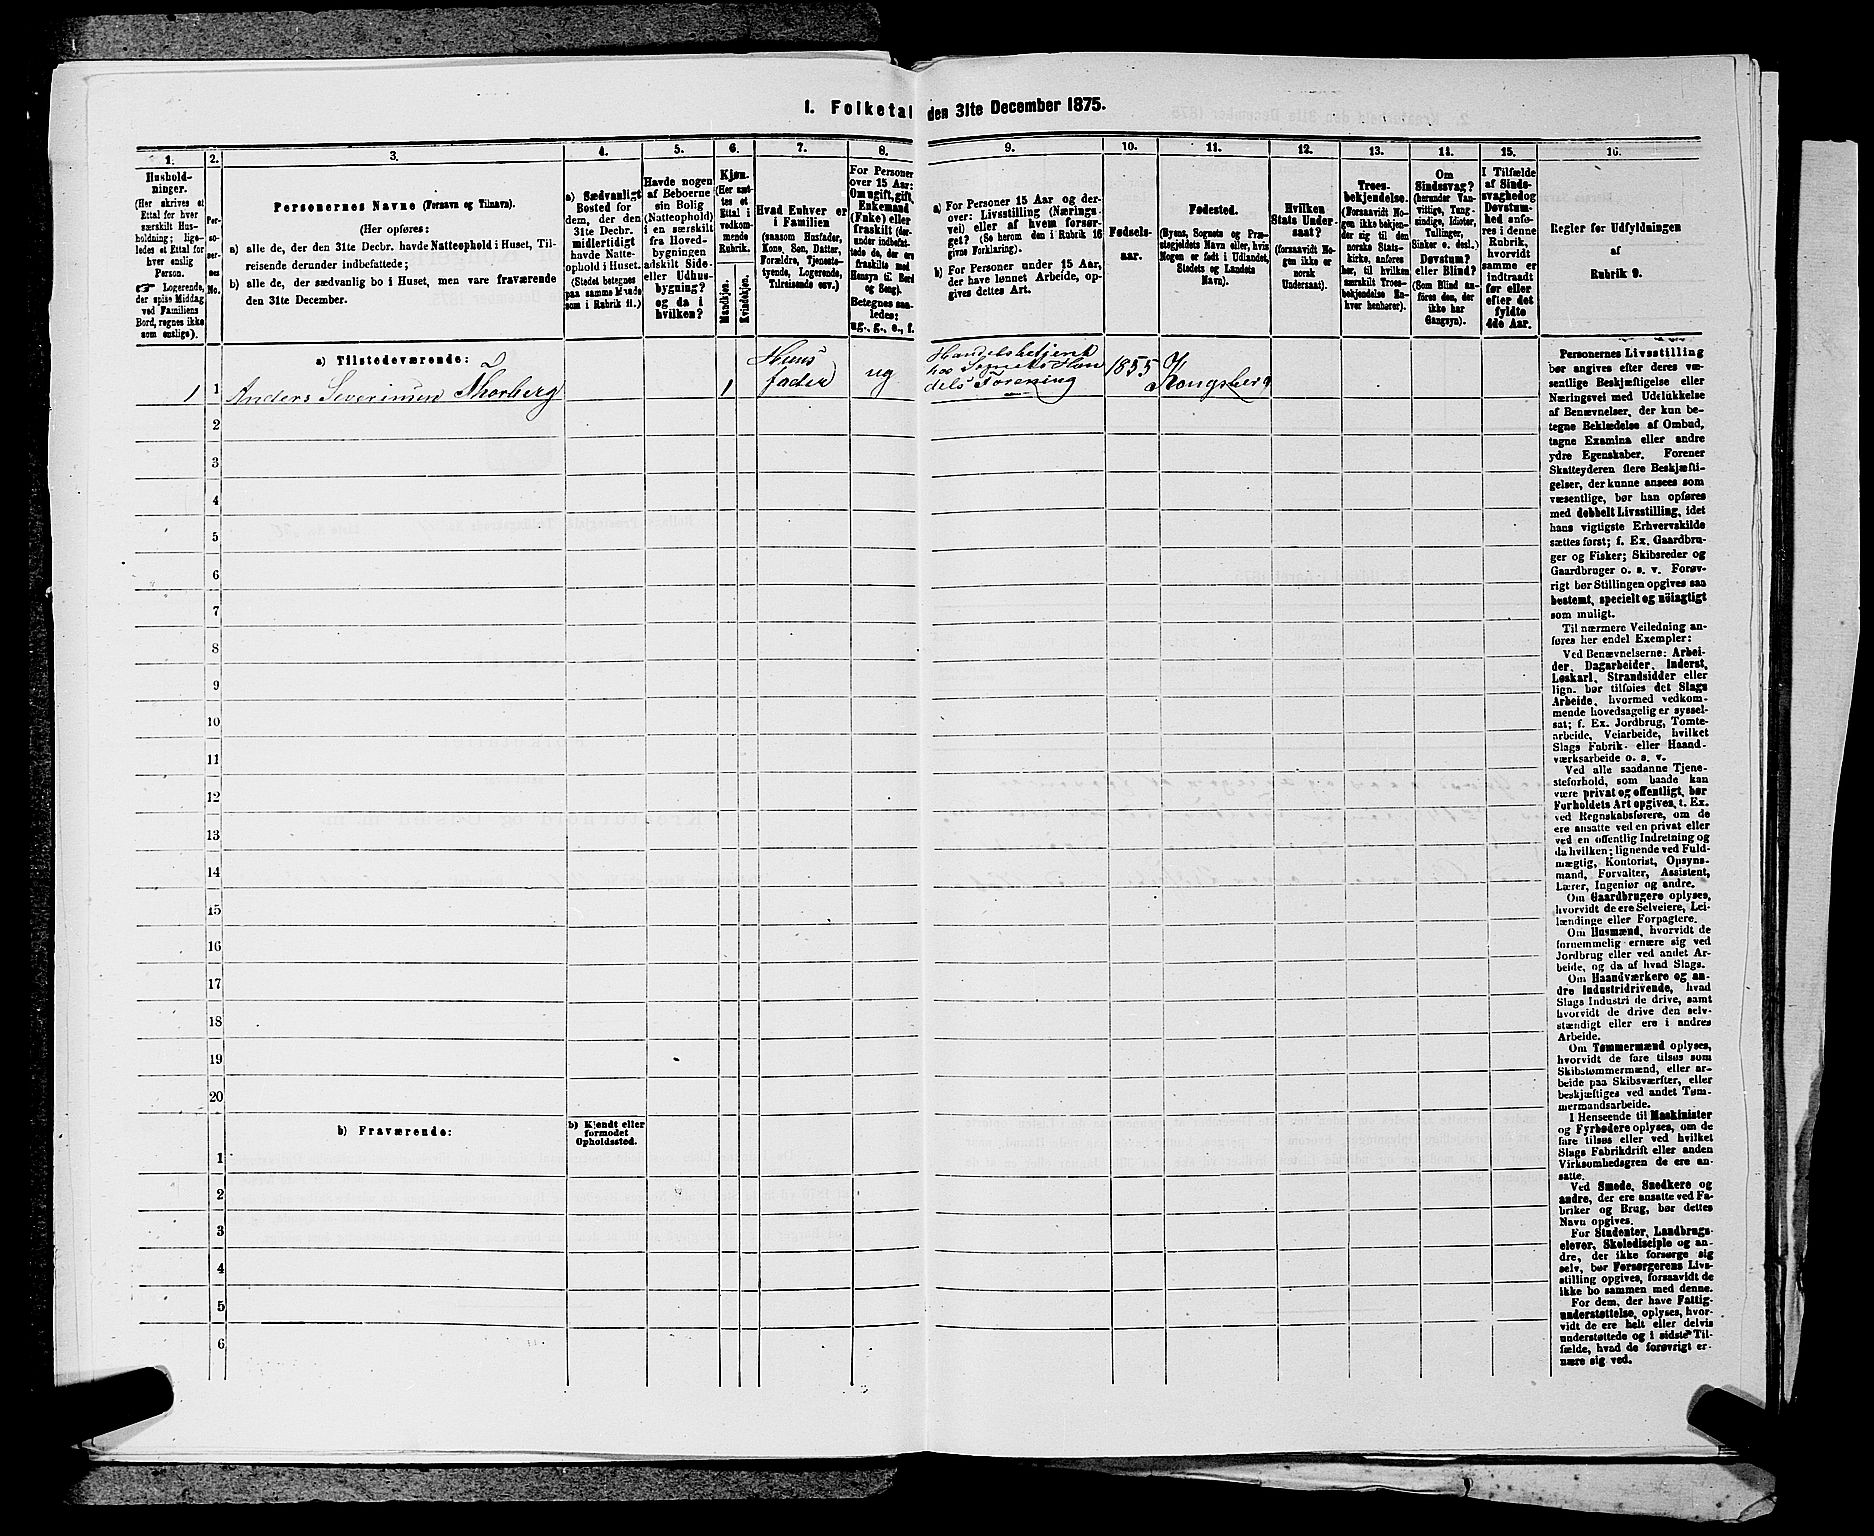 1. Folketal den 31te December 1875.
1.
Hushold-
ninger.
(Her skrives et
Ettal for hver
særskilt Hus-
holdning; lige-
ledes et Ettal for
hver enslig
Person.
☛ Logerende,
der spise Middag
ved Familiens
Bord, regnes ikke
som enslige).
2.
Per-
so-
ner-
nes
No.
3.
Personernes Navne (Fornavn og Tilnavn).
(Her opføres:
a) alle de, der den 31te Decbr. havde Natteophold i Huset, Til-
reisende derunder indbefattede;
b) alle de, der sædvanlig bo i Huset, men vare fraværende
den 31te December.
4.
a) Sædvanligt
Bosted for
dem, der den
31te Decbr.
midlertidigt
havde Natte-
ophold i Huset.
(Stedet betegnes
paa samme Maade
som i Rubrik 11.)
5.
Havde nogen
af Beboerne
sin Bolig
(Natteophold)
i en særskilt
fra Hoved-
bygningen
adskilt Side-
eller Udhus-
bygning?
og da i
hvilken?
6.
Kjøn.
(Her sæt-
tes et
Ettal i
vedkom-
mende
Rubrik.
Mandkjøn.
Kvindekjøn.
7.
Hvad Enhver er
i Familien
(saasom Husfader,
Kone, Søn, Datter,
Forældre, Tjeneste-
tyende, Logerende,
Tilreisende osv.)
8.
For Personer
over 15 Aar:
Om ugift, gift,
Enkemand
(Enke) eller
fraskilt (der-
under indbefat-
tede de, der ere
fraskilte med
Hensyn til Bord
og Seng).
Betegnes saa-
ledes:
ug., g., e., f.
9.
a) For Personer 15 Aar og der-
over: Livsstilling (Nærings-
vei) eller af hvem forsør-
get? (Se herom den i Rubrik 16
givne Forklaring).
b) For Personer under 15 Aar,
der have lønnet Arbeide, op-
gives dettes Art.
10.
Fødsels-
aar.
11.
Fødested.
(Byens, Sognets og Præ-
stegjeldets Navn eller, hvis
Nogen er født i Udlandet,
Stedets og Landets
Navn).
12.
Hvilken
Stats Under-
saat?
(forsaavidt No-
gen ikke er
norsk
Undersaat).
13.
Troes-
bekjendelse.
(Forsaavidt No-
gen ikke bekjen-
der sig til den
norske Stats-
kirke, anføres
her, til hvilken
særskilt Troes-
bekjendelse En-
hver henhører).
14.
Om
Sindssvag?
(herunder Van-
vittige, Tung-
sindige, Idioter,
Tullinger,
Sinker o. desl.)
Døvstum?
eller Blind?
(Som Blind an-
føres den, der
ikke har
Gangsyn).
15.
I Tilfælde
af Sinds-
svaghed og
Døvstum-
hed anfø-
res i denne
Rubrik,
hvorvidt
samme er
indtraadt
før eller
efter det
fyldte
4de Aar.
16.
Regler for Udfyldningen
af
Rubrik 9.
a) Tilstedeværende:
1 1 Anders Severinsen Thorberg 1 Huus
fader ug Handelsbetjent
hos Sognets Han
dels Forening 1855 Kongsberg
2
3
4
5
6
7
8
9
10
11
12
13
14
15
16
17
18
19
20
b) Fraværende:
b) Kjendt eller
formodet
Opholdssted.
1
2
3
4
5
6
Personernes Livsstilling
bør angives efter deres væ-
sentlige Beskjæftigelse eller
Næringsvei med Udelukkelse
af Benævnelser, der kun be-
tegne Beklædelse af Ombud,
tagne Examina eller andre
ydre Egenskaber. Forener
Skatteyderen flere Beskjæfti-
gelser, der kunne ansees som
væsentlige, bør han opføres
med dobbelt Livsstilling, idet
hans vigtigste Erhvervskilde
sættes først; f. Ex. Gaardbru-
ger og Fisker; Skibsreder og
Gaardbruger o. s. v. Forøv-
rigt bør Stillingen opgives saa
bestemt, specielt og nöiagtigt
som muligt.
Til nærmere Veiledning an-
føres her endel Exempler:
Ved Benævnelserne: Arbei-
der, Dagarbeider, Inderst,
Løskarl, Strandsidder eller
lign. bør tilføies det Slags
Arbeide, hvormed vedkom-
mende hovedsagelig er syssel-
sat; f. Ex. Jordbrug, Tomte-
arbeide, Veiarbeide, hvilket
Slags Fabrik- eller Haand-
værksarbeide o. s. v.
Ved alle saadanne Tjene-
steforhold, som baade kan
være privat og offentligt, bør
Forholdets Art opgives, t. Ex.
ved Regnskabsførere, om de
ere ansatte ved en privat eller
ved en offentlig Indretning og
da hvilken; lignende ved Fuld-
mægtig, Kontorist, Opsyns-
mand, Forvalter, Assistent,
Lærer, Ingeniør og andre.
Om Gaardbrugere oplyses,
hvorvidt de ere Selveiere, Lei-
lændinge eller Forpagtere.
Om Husmænd, hvorvidt de
fornemmelig ernære sig ved
Jordbrug eller ved andet Ar-
beide, og da af hvad Slags.
Om Haandværkere og an-
dre Industridrivende, hvad
Slags Industri de drive, samt
hvorvidt de drive den selv-
stændigt eller ere i andres
Arbeide.
Om Tømmermænd oplyses,
hvorvidt de fare tilsøs som
Skibstømmermænd, eller ar-
beide paa Skibsværfter, eller
beskjæftiges ved andet Tøm-
mermandsarbeide.
I Henseende til Maskinister
og Fyrbødere oplyses, om de
fare tilsøs eller ved hvilket
Slags Fabrikdrift eller anden
Virksomhedsgren de ere an-
satte.
Ved Smede, Snedkere og
andre, der ere ansatte ved Fa-
briker og Brug, bør dettes
Navn opgives.
For Studenter, Landbrugs-
elever, Skoledisciple og an-
dre, der ikke forsørge sig
selv, bør Forsørgerens Livs-
stilling opgives, forsaavidt de
ikke bo sammen med denne.
For dem, der have Fattig-
understøttelse, oplyses, hvor-
vidt de ere helt eller delvis
understøttede og i sidste Til-
fælde, hvad de forøvrigt er-
nære sig ved.